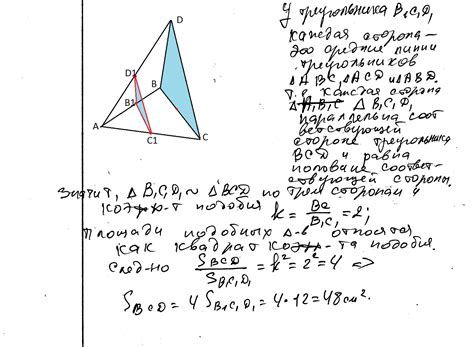 D
D1
B
B1
A
C1
C
У треугольника B₁C₁D₁
каждая сторона—
это средние линии
треугольников
△ABC, △ACD и △ABD.
Т.е. каждая сторона
△B₁C₁D₁
параллельна соот
ветствующей
стороне треугольника
BCD и равна
половине соответ-
ствующей стороны.
Значит, △B₁C₁D₁ ~ △BCD по трем сторонам и
коэф-т подобия k = BC/B₁C₁ = 2;
Площади подобных Δ-в относятся
как квадрат коэф-та подобия.
След-но S_BCD/S_B₁C₁D₁ = k² = 2² = 4 ⇒
S_BCD = 4 S_B₁C₁D₁ = 4·12 = 48 см².